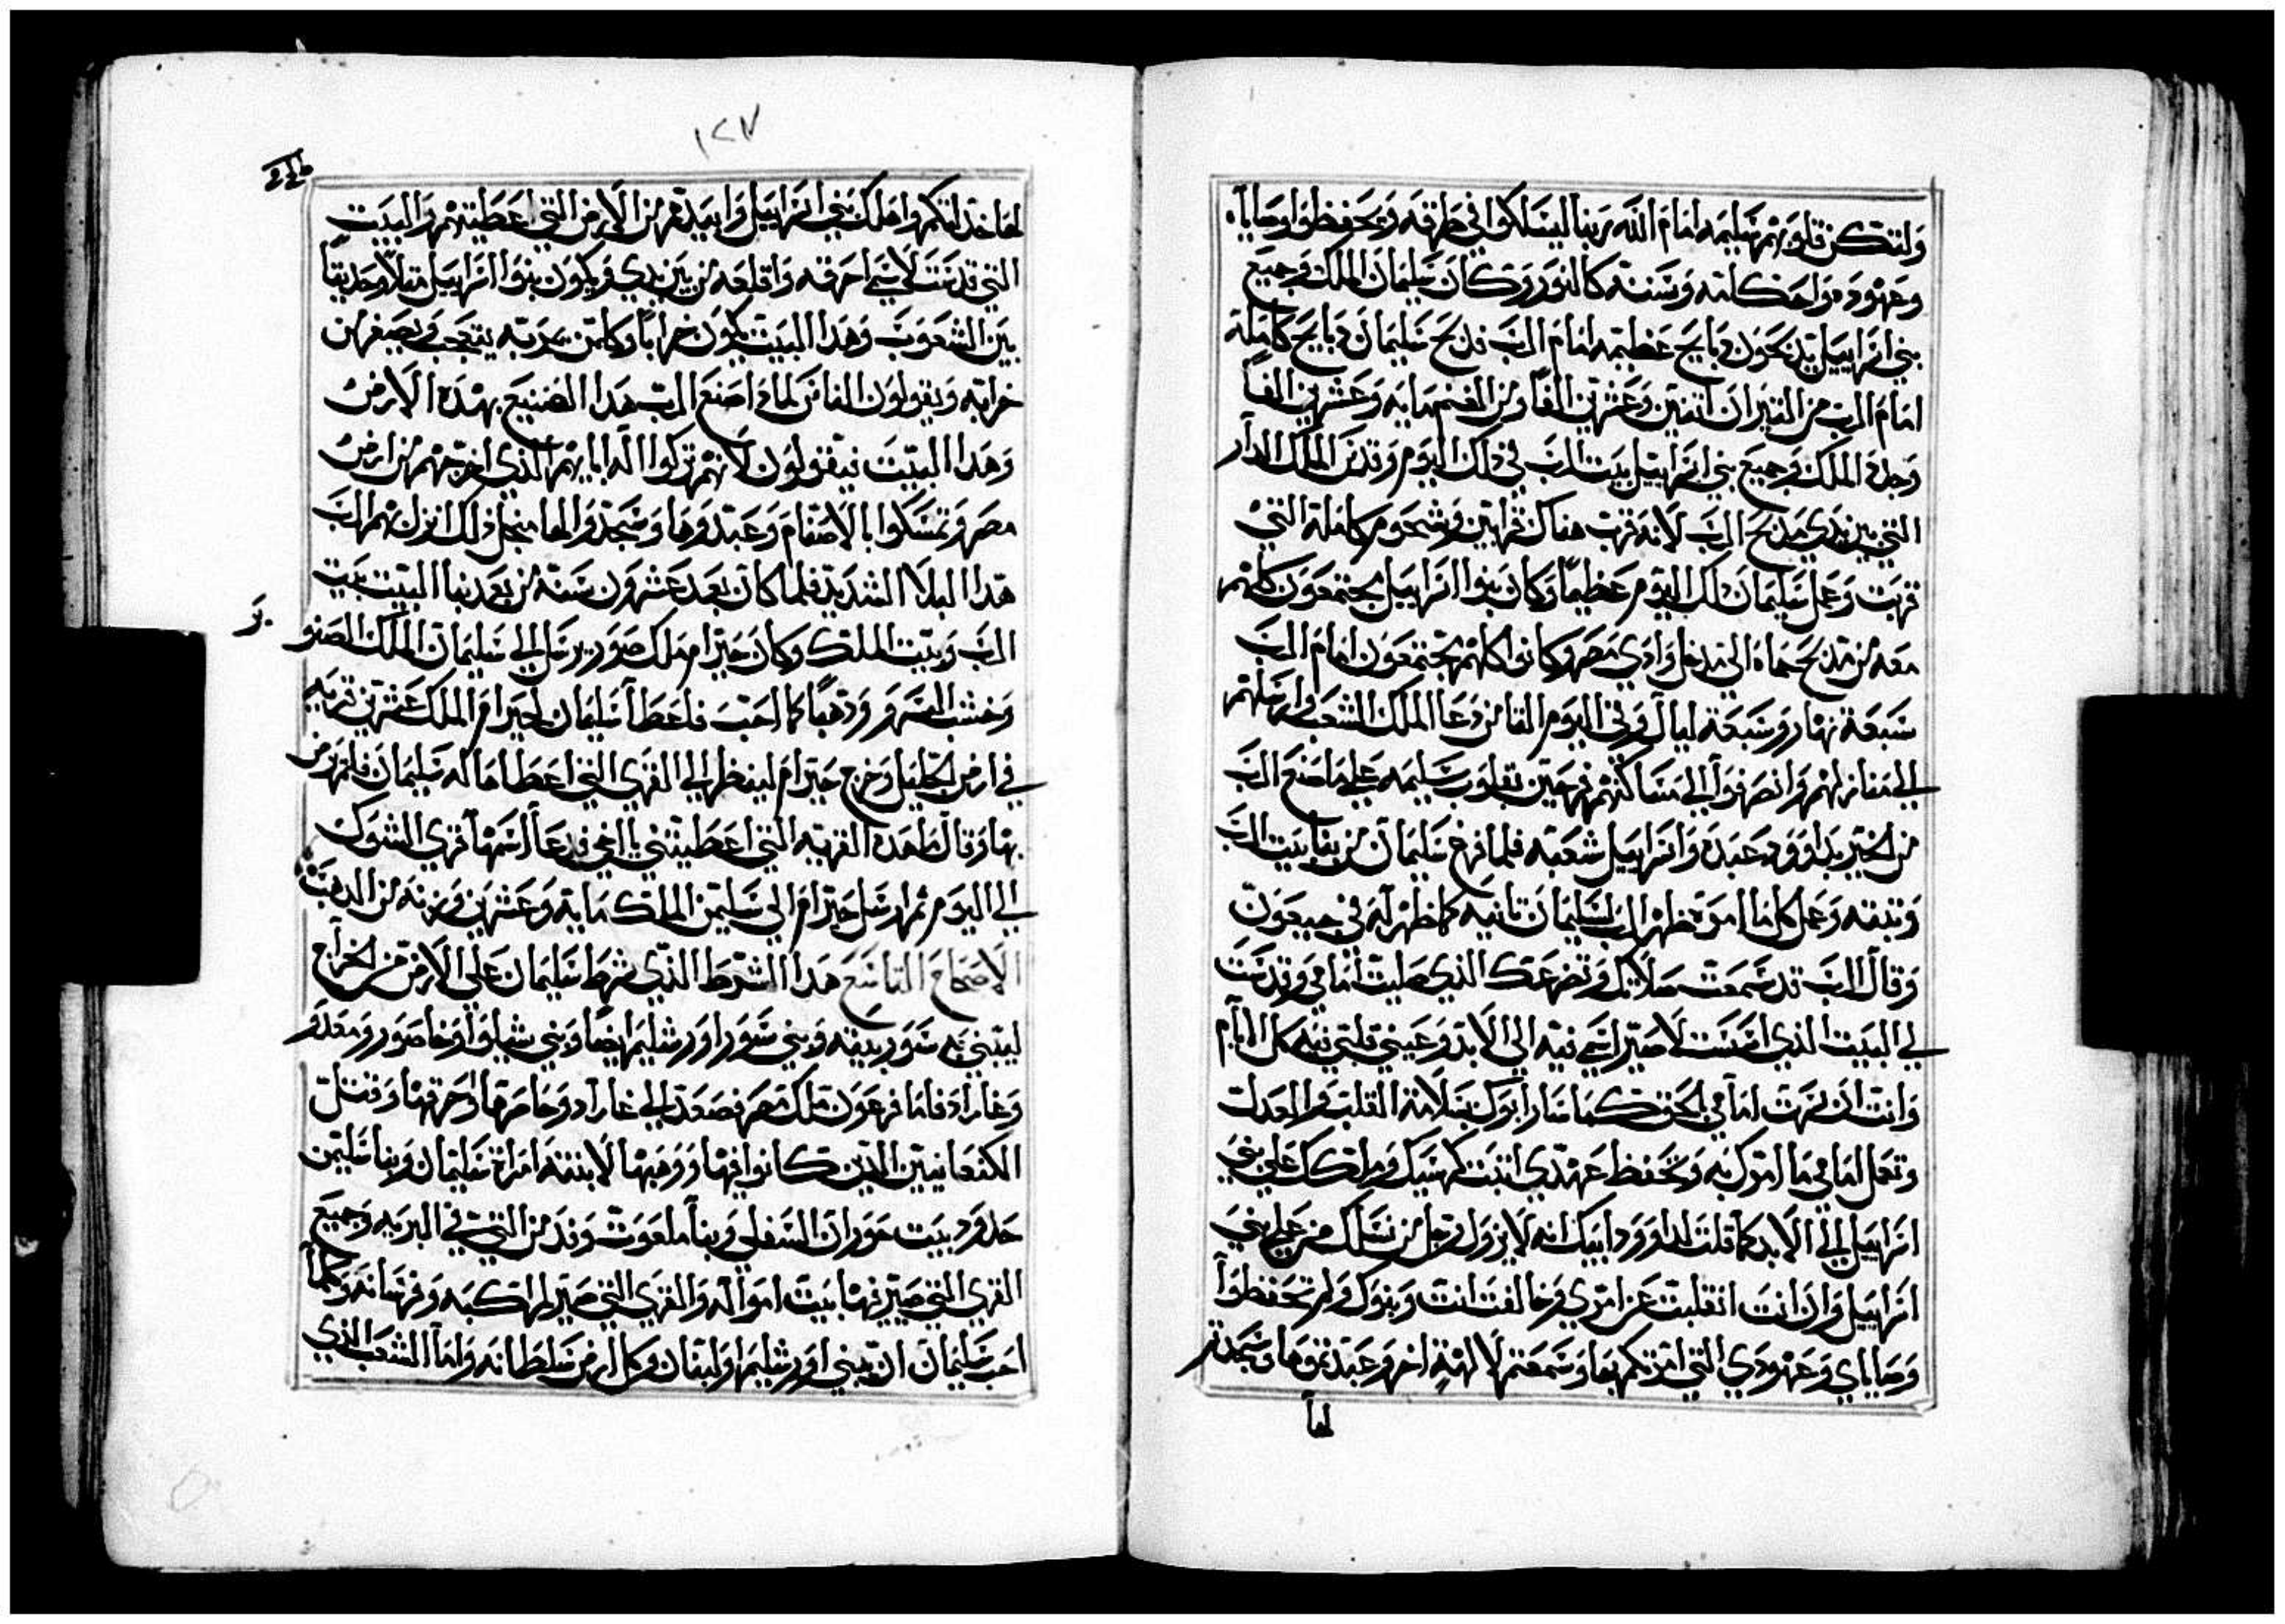 ولتكن قلوبهم سليمه امام الله ربنا ليسلكوا في طرقه ويحفظوا وصاياه
وعهوده واحكامه وسننه كالنور وكان سليمان الملك وجميع
بني اسراييل يدبحون دبايح عظيمه امام الرب فدبح سليمان دبايح كامله
امام الرب من التيران اتنين وعشرين الفا ومن الغنم مايه وعشرين الفا
وجدد الملك وجميع بني اسراييل بيت الرب في دلك اليوم وقدس الملك الدار
التي بين يدي مدبح الرب لانه قرب هناك قرابين وشحوم كامله التي
قربت وعمل سليمان دلك اليوم عظيما وكان بنوا اسراييل مجتمعون كلهم
معه من مدبح حماه الي مدخل وادي مصر وكانوا كلهم مجتمعون امام الرب
سبعة نهار وسبعة ليال وفي اليوم التامن دعا الملك الشعب وارسلهم
الي منازلهم وانصرفوا الي مساكنهم فرحين بقلوب سليمه علي ما صنع الرب
من الخير بداوود عبده واسراييل شعبه فلما فرغ سليمان من بنا بيت الرب
وبيته وعمل كل ما امره ظهر الرب لسليمان تانيه كما ظهر له في جبعون
وقال الرب قد سمعت صلاتك وتضرعك الذي صليت امامي وقدست
لي البيت الذي اسست لاصير اسمي فيه الي الابد وعيني وقلبي فيه كل الايام
وانت ان سرت امامي بالحق كما سار ابوك بسلامة القلب والعدل
وتعمل امامي ما امرتك به وتحفظ عهدي اتبت كرسيك وملكك علي بني
اسراييل الي الابد كما قلت لداوود ابيك انه لا يزول رجل من نسلك من علي بني
اسراييل وان انت انقلبت عن امري وخالفت انت وبنوك ولم تحفظوا
وصاياي وعهودي التي امرتكم بها وسمعتم لالهة اخر وعبدتموها وسجدتم
لها
١٢٧
لها خدلتكم واهلك بني اسراييل وابيدهم من الارض التي اعطيتهم والبيت
التي قدست لاسمي احرقه واقلعه من بين يدي ويكون بنوا اسراييل متلا وحديتا
بين الشعوب وهدا البيت يكون خرابا وكل من يمر به يتعجب ويصفر من
خرابه ويقولون الناس لمادا صنع الرب هدا الصنيع بهده الارض
وهدا البيت فيقولون لانهم تركوا اله ابايهم الذي اخرجهم من ارض
مصر وتمسكوا بالاصنام وعبدوها وسجدوا لها من اجل دلك انزل بهم الرب
هدا البلا الشديد فلما كان بعد عشرون سنة من بعد بنا البيت بيت
الرب وبيت الملك وكان حيرام ملك صور يرسل الي سليمان الملك الصنوبر
وخشب السرو ودهبا كما احب فاعطا سليمان لحيرام الملك عشرين قريه
في ارض الجليل وخرج حيرام لينظر الي القري التي اعطاها له سليمان فلم يرض
بها وقال ما هده القريه التي اعطيتني يا اخي فدعا اسمها قري الشوك
الي اليوم تم ارسل حيرام الي سليمن الملك مايه وعشرين وزنه من الدهب
الاصحاح التاسع هدا الشرط الذي شرط سليمان علي الارض من الخراج
ليبني به سور بيته وبني سور اورشليم ايضا وبني شيلوا وحاصور ومعدو
وغاراد فاما فرعون ملك مصر فصعد الي غاراد وحاصرها واحرقها وقتل
الكنعانيين الدين كانوا فيها ووهبها لابنته امراة سليمان وبنا سليمن
حدود بيت حوران السفلي وبنا ملعوت وتدمر التي في البريه وجميع
القري التي صير فيها بيت امواله والقري التي صير لمراكبه وفرسانه وكلما
احب سليمان ان يبني اورشليم ولبنان وكل ارض سلطانه واما الشعب الذي